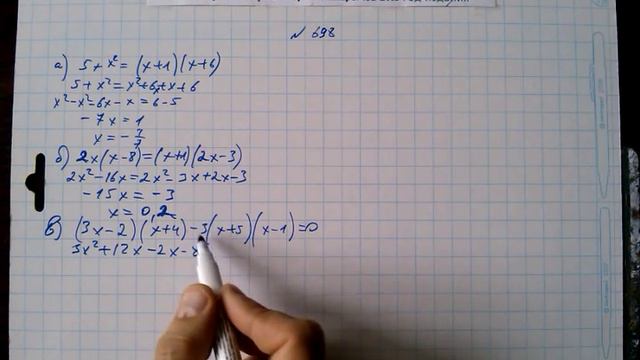 № 698
а) 5 + x² = (x+1)(x+6)
5 + x² = x² + 6x + x + 6
x² - x² - 6x - x = 6 - 5
- 7x = 1
x = - 1/7
б) 2x(x - 8) = (x+1)(2x - 3)
2x² - 16x = 2x² - 3x + 2x - 3
- 15x = - 3
x = 0,2
в) (3x - 2)(x+4) - 3(x+5)(x - 1) = 0
3x² + 12x - 2x - 8